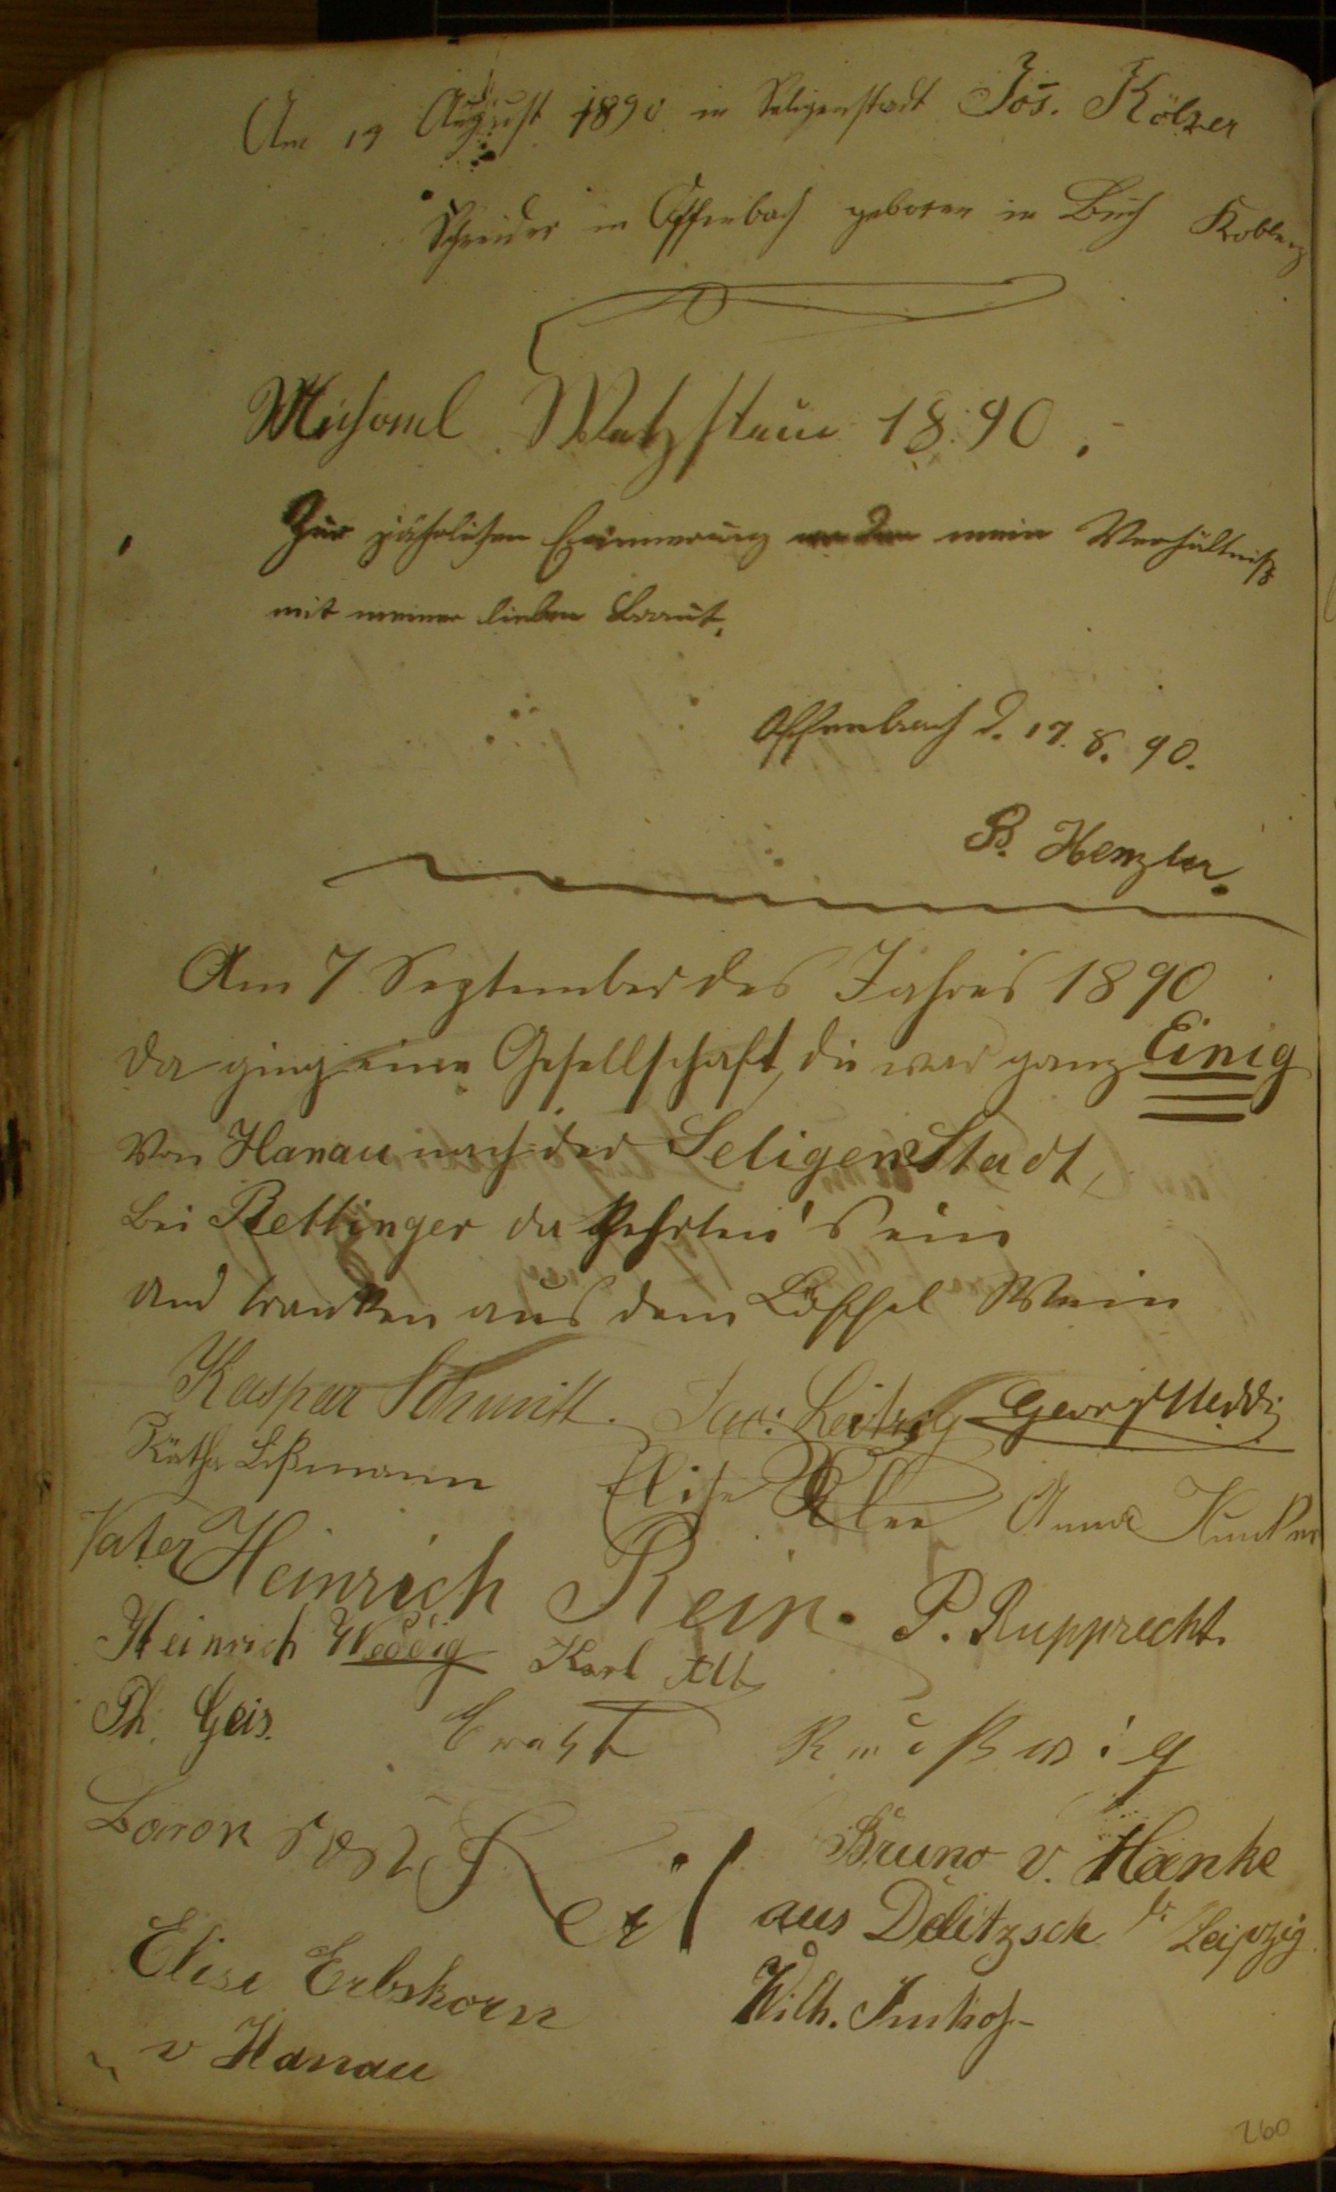 Am 17 August 1890 in Seligenstadt Jos. Kölzer
Schneider in Offenbach geboren in Buch Koblenz
Michael Wetzstein 1890.
Zur jährlichen Erinnerung mein Verhältniß
mit meiner lieben Braut.
Offenbach d. 17. 8. 90.
B. Henzler.
Am 7 September des Jahres 1890
da ging eine Gesellschaft, die war ganz Einig
Von Hanau nach der Seligenstadt,
bei Rettinger da kehrten's ein
und tranken aus dem Löffel Wein
Kaspar Schmitt. Georg Weddig
Käthe Lißmann Elise Klee Anna Kunker
Vater Heinrich Rein. P. Rupprecht.
Heinrich Weddig Karl Alt
Th. Geis. Ernst Rußwig
Baron Keil Bruno v. Hanke
aus Delitzsch b. Leipzig.
Elise Erbskorn Wilh. Imhof
v Hanau
260